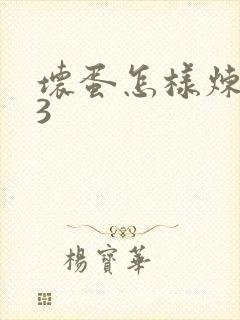 壞蛋怎樣煉
3
楊寶華